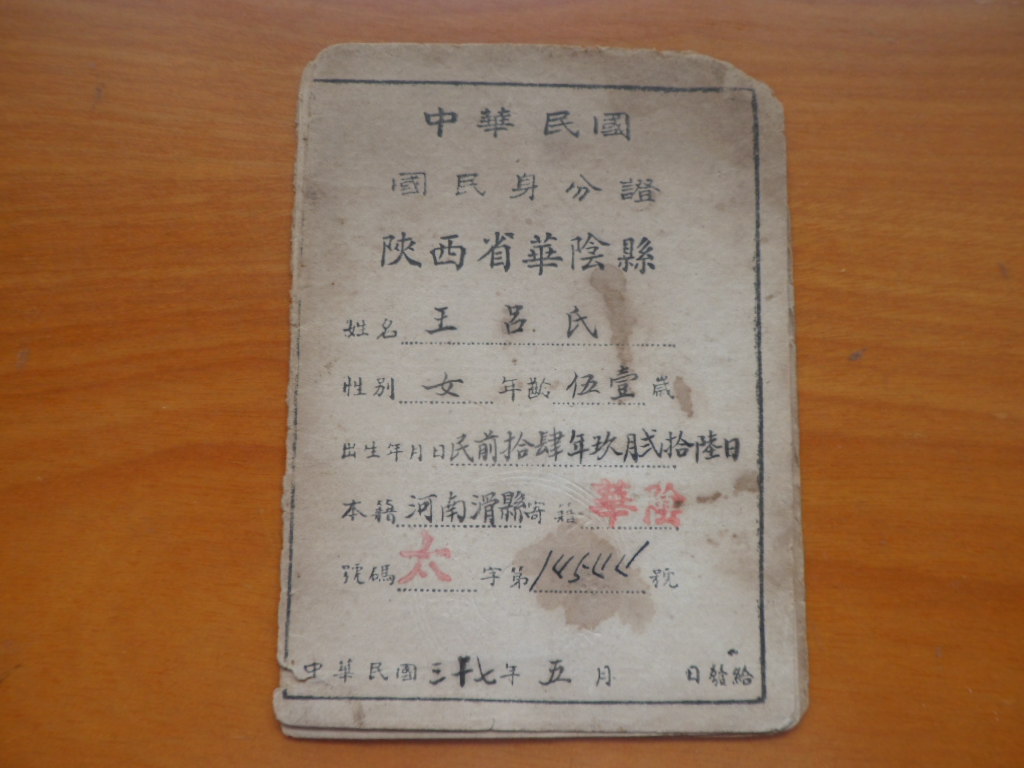 中華民國
國民身分證
陝西省華陰縣
姓名 王呂氏
性別 女 年齡 伍壹 歲
出生年月日 民前拾肆年玖月弍拾陸日
本籍 河南滑縣 寄籍 華陰
號碼 太 字第 號
中華民國三十七年五月 日發給